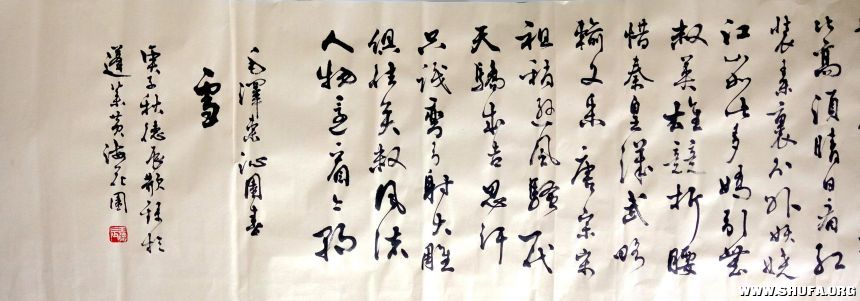 比高須晴日看红
裝素裹分外妖嬈
江山如此多嬌引無
數英雄競折腰
惜秦皇漢武略
輸文采唐宗宋
祖稍遜風騷一代
天驕成吉思汗
只識彎弓射大雕
俱往矣數風流
人物還看今朝
毛澤東沁園春
雪
庚子秋德辰敬錄於
蓬萊黄海花園
WWW.SHUFA.ORG